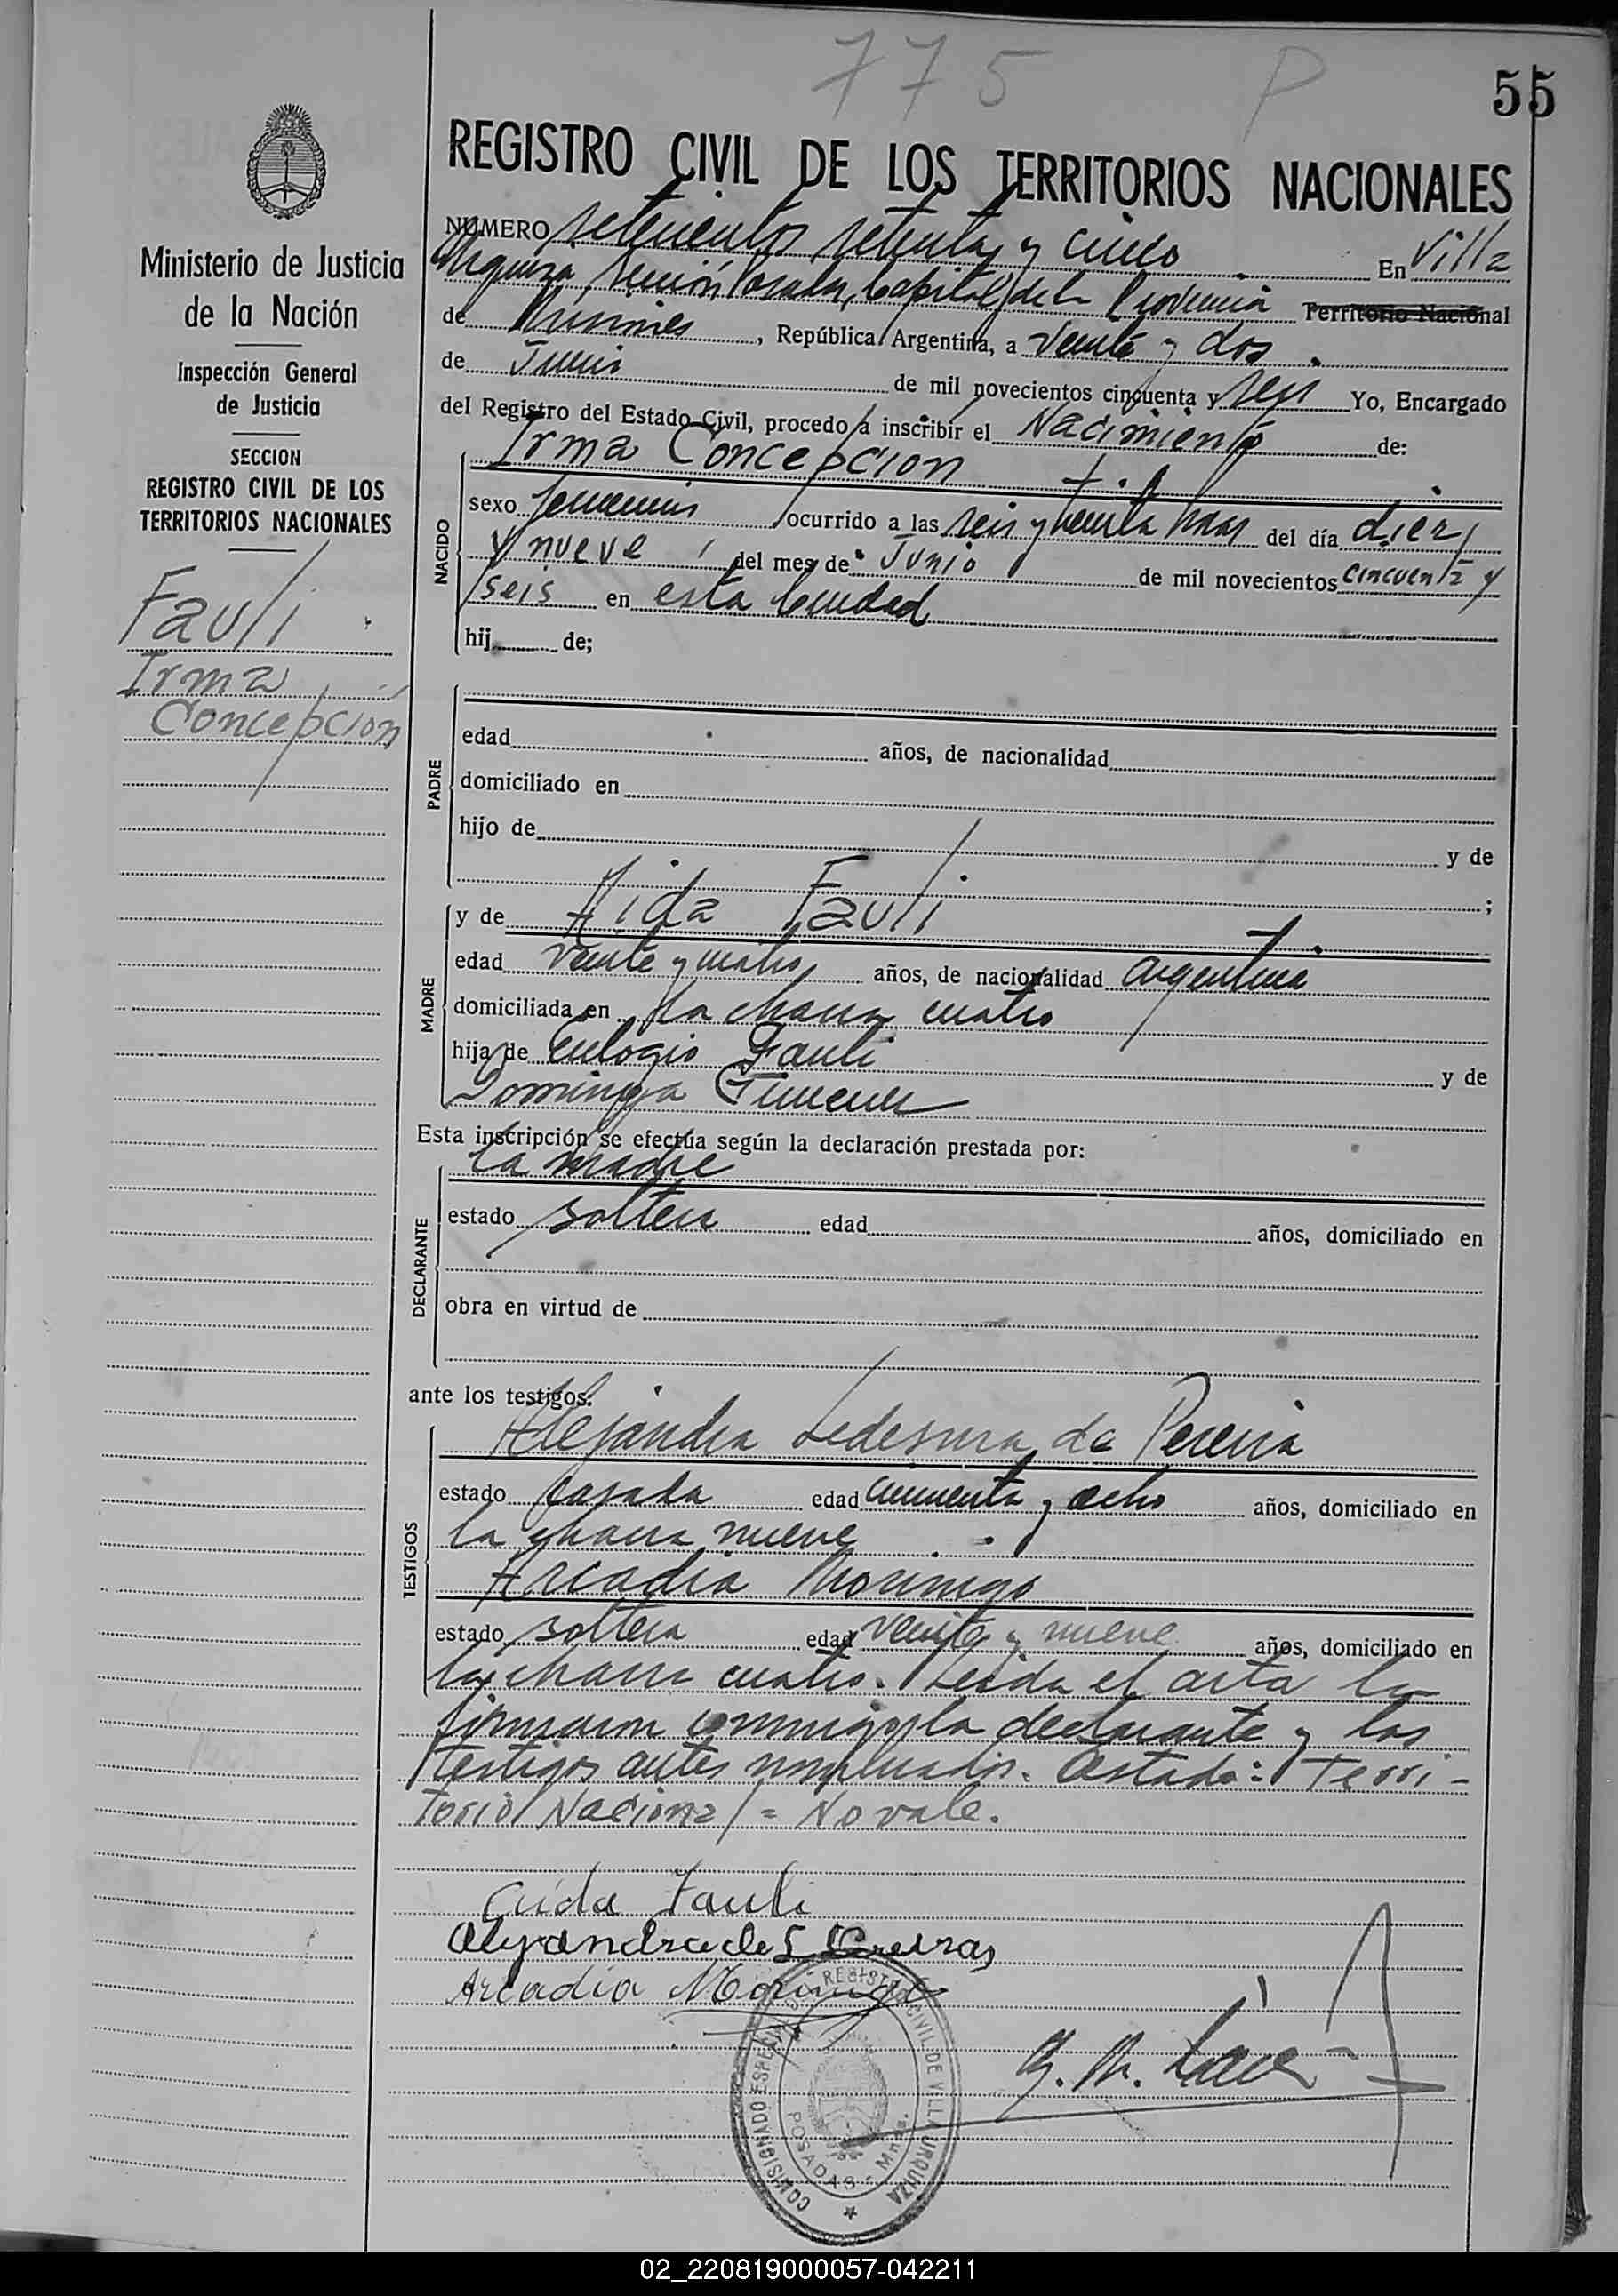 775 P
55
REGISTRO CIVIL DE LOS TERRITORIOS NACIONALES
Ministerio de Justicia
de la Nación
Inspección General
de Justicia
SECCION
REGISTRO CIVIL DE LOS
TERRITORIOS NACIONALES
Fauli
Irma
Concepcion
NUMERO setecientos setenta y cinco En Villa
Urquiza, Sección Posadas, Capital de la Provincia Territorio Nacional
de Misiones, República Argentina, a veinte y dos
de Junio de mil novecientos cincuenta y seis Yo, Encargado
del Registro del Estado Civil, procedo a inscribir el Nacimiento de:
Irma Concepcion
NACIDO
sexo femenino ocurrido a las seis y treinta horas del día diez
y nueve del mes de Junio de mil novecientos cincuenta y
seis en esta Ciudad
hij de;
PADRE
edad años, de nacionalidad
domiciliado en
hijo de y de
;
MADRE
y de Aida Fauli
edad veinte y cuatro años, de nacionalidad argentina
domiciliada en la chacra cuatro
hija de Eulogio Fauli y de
Dominga Gimenez
Esta inscripción se efectúa según la declaración prestada por:
la madre
DECLARANTE
estado soltera edad años, domiciliado en
obra en virtud de
ante los testigos:
TESTIGOS
Alejandra Ledesma de Pereira
estado casada edad cincuenta y ocho años, domiciliado en
la chacra nueve
Arcadia Morinigo
estado soltera edad veinte y nueve años, domiciliado en
la chacra cuatro. Leida el acta la
firmaron conmigo la declarante y los
testigos antes nombrados. Testado: Terri-
torio Nacional = No vale.
Aida Fauli
Alejandra de L Pereira
Arcadia Morinigo
COMISIONADO ESPECIAL DEL REGISTRO CIVIL DE VILLA URQUIZA
POSADAS - Mnes.
02_220819000057-042211